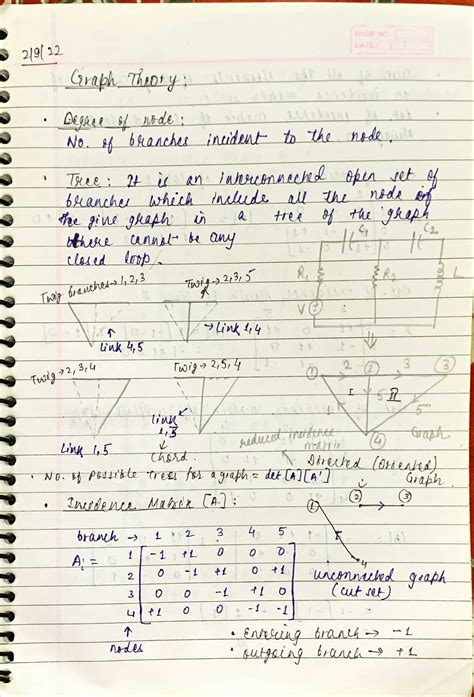 PAGE NO
DATE
2/9/22
Graph Theory:
• Degree of node:
No. of branches incident to the node.
• Tree: It is an interconnected open set of
branches which include all the node of
the give graph in a tree of the graph
there cannot be any
closed loop.
C1 C2
R1 R2 L
V
Twig branches→1,2,3
Twig→2,3,5
Link 4,5
→Link 1,4
Twig→2,3,4
Twig→2,5,4
Link 1,5
Link
1,3
Chord.
1 2 2 3 3
I 5 II 5
4
Graph
reduced incidence
matrix
Directed (Oriented)
Graph.
• No. of Possible Trees for a graph = det [A][A']
• Incedence Matrix [A]:
1 2 3
4
branch → 1 2 3 4 5
Ai = 1 -1 +1 0 0 0
2 0 -1 +1 0 +1
3 0 0 -1 +1 0
4 +1 0 0 -1 -1
nodes
unconnected graph
(cut set)
• Entering branch → -1
• outgoing branch → +1